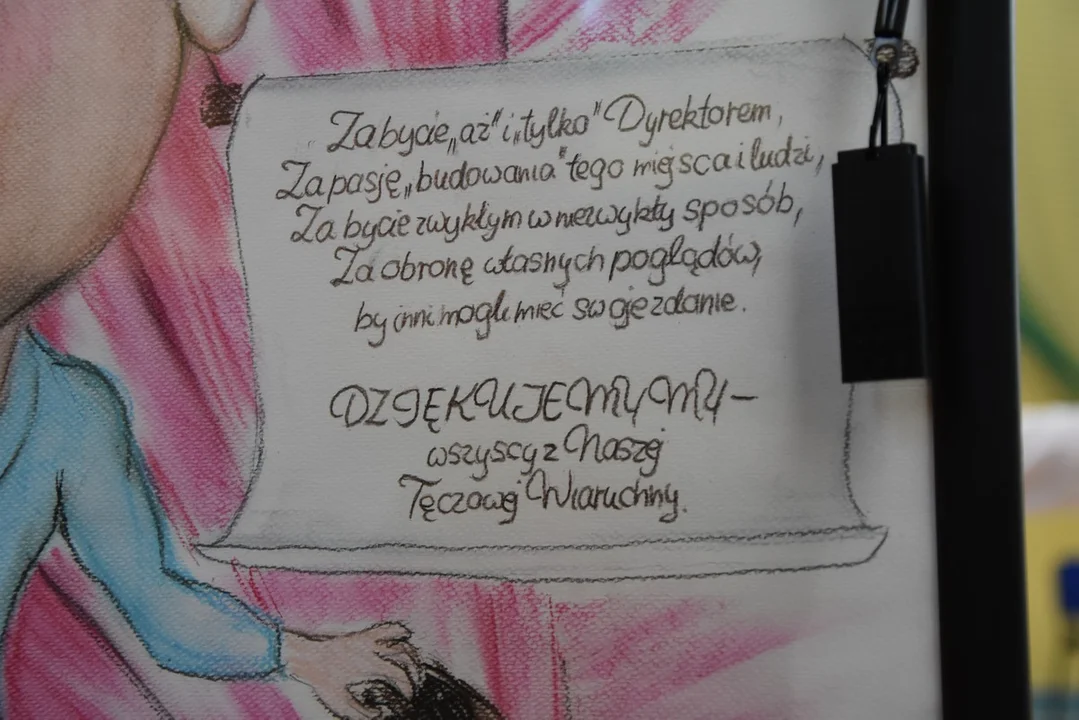 Za bycie „aż" i „tylko" Dyrektorem,
Za pasję „budowania" tego miejsca i ludzi,
Za bycie zwykłym w niezwykły sposób,
Za obronę własnych poglądów,
by inni mogli mieć swoje zdanie.
DZIĘKUJEMY MY –
wszyscy z Naszej
Tęczowej Wiaruchny.